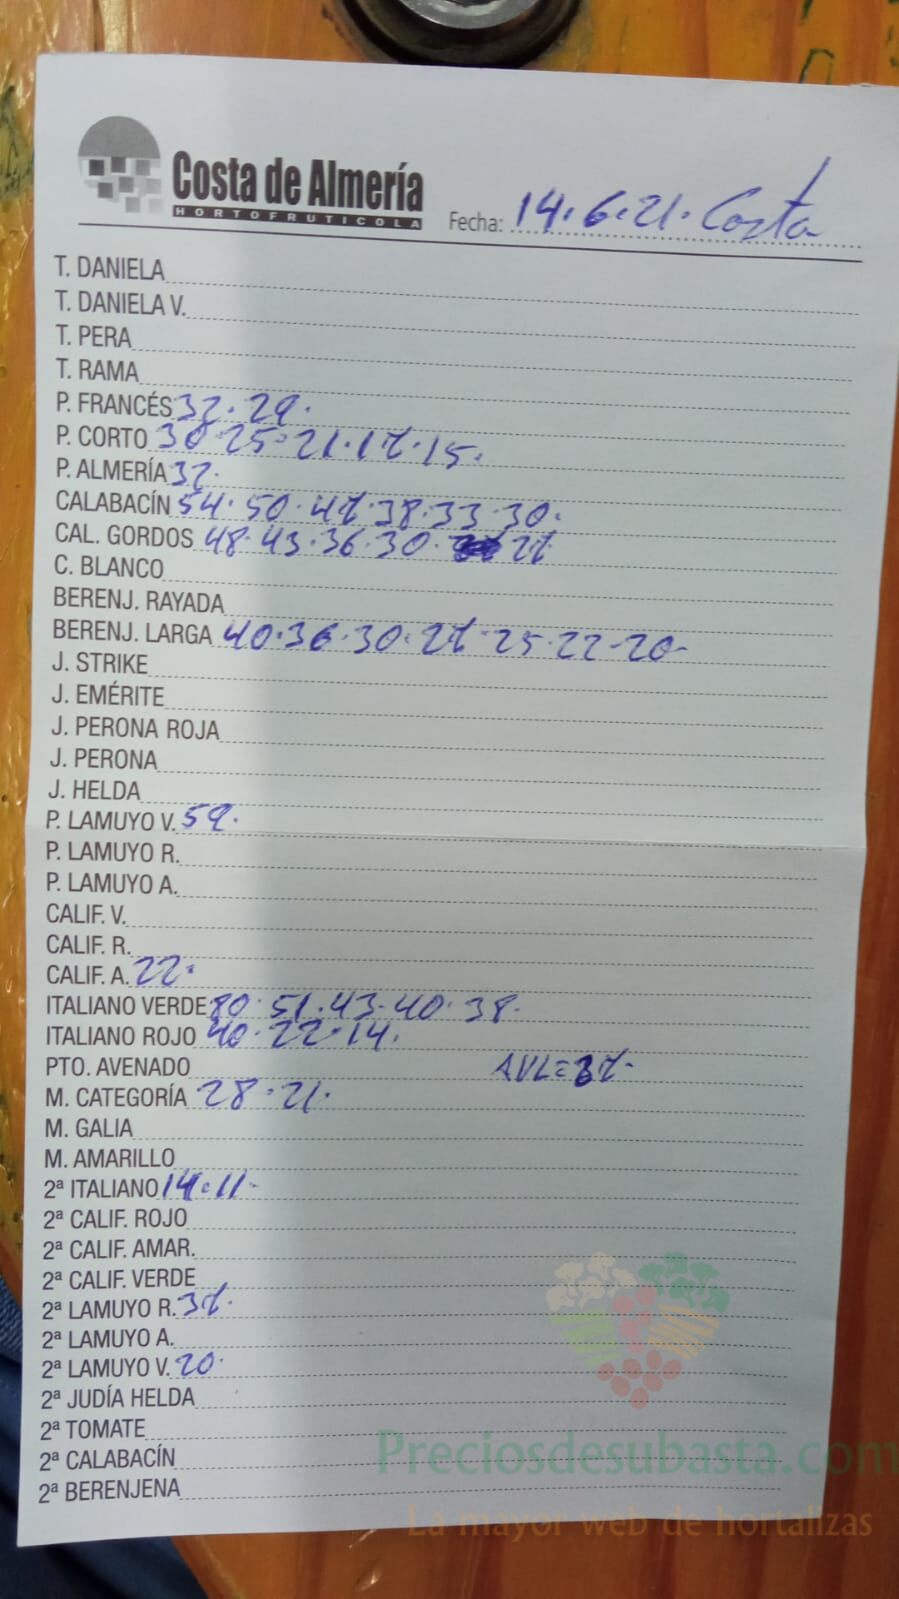 Costa de Almería
HORTOFRUTICOLA
Fecha: 14.6.21. Costa
T. DANIELA
T. DANIELA V.
T. PERA
T. RAMA
P. FRANCÉS 32. 29.
P. CORTO 30 25. 21. 17. 15.
P. ALMERÍA 32.
CALABACÍN 54. 50. 47. 38. 33. 30.
CAL. GORDOS 48. 43. 36. 30. 27.
C. BLANCO
BERENJ. RAYADA
BERENJ. LARGA 40. 36. 30. 27. 25. 22-20-
J. STRIKE
J. EMÉRITE
J. PERONA ROJA
J. PERONA
J. HELDA
P. LAMUYO V. 59.
P. LAMUYO R.
P. LAMUYO A.
CALIF. V.
CALIF. R.
CALIF. A. 22.
ITALIANO VERDE 80. 51. 43. 40. 38.
ITALIANO ROJO 40. 22. 14.
PTO. AVENADO AVL=37-
M. CATEGORÍA 28. 21.
M. GALIA
M. AMARILLO
2ª ITALIANO 14. 11-
2ª CALIF. ROJO
2ª CALIF. AMAR.
2ª CALIF. VERDE
2ª LAMUYO R. 37.
2ª LAMUYO A.
2ª LAMUYO V. 20.
2ª JUDÍA HELDA
2ª TOMATE
2ª CALABACÍN
2ª BERENJENA
Preciosdesubasta.com
La mayor web de hortalizas